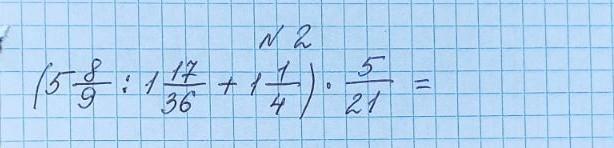 N 2
(5 8/9 : 1 17/36 + 1 1/4) · 5/21 =